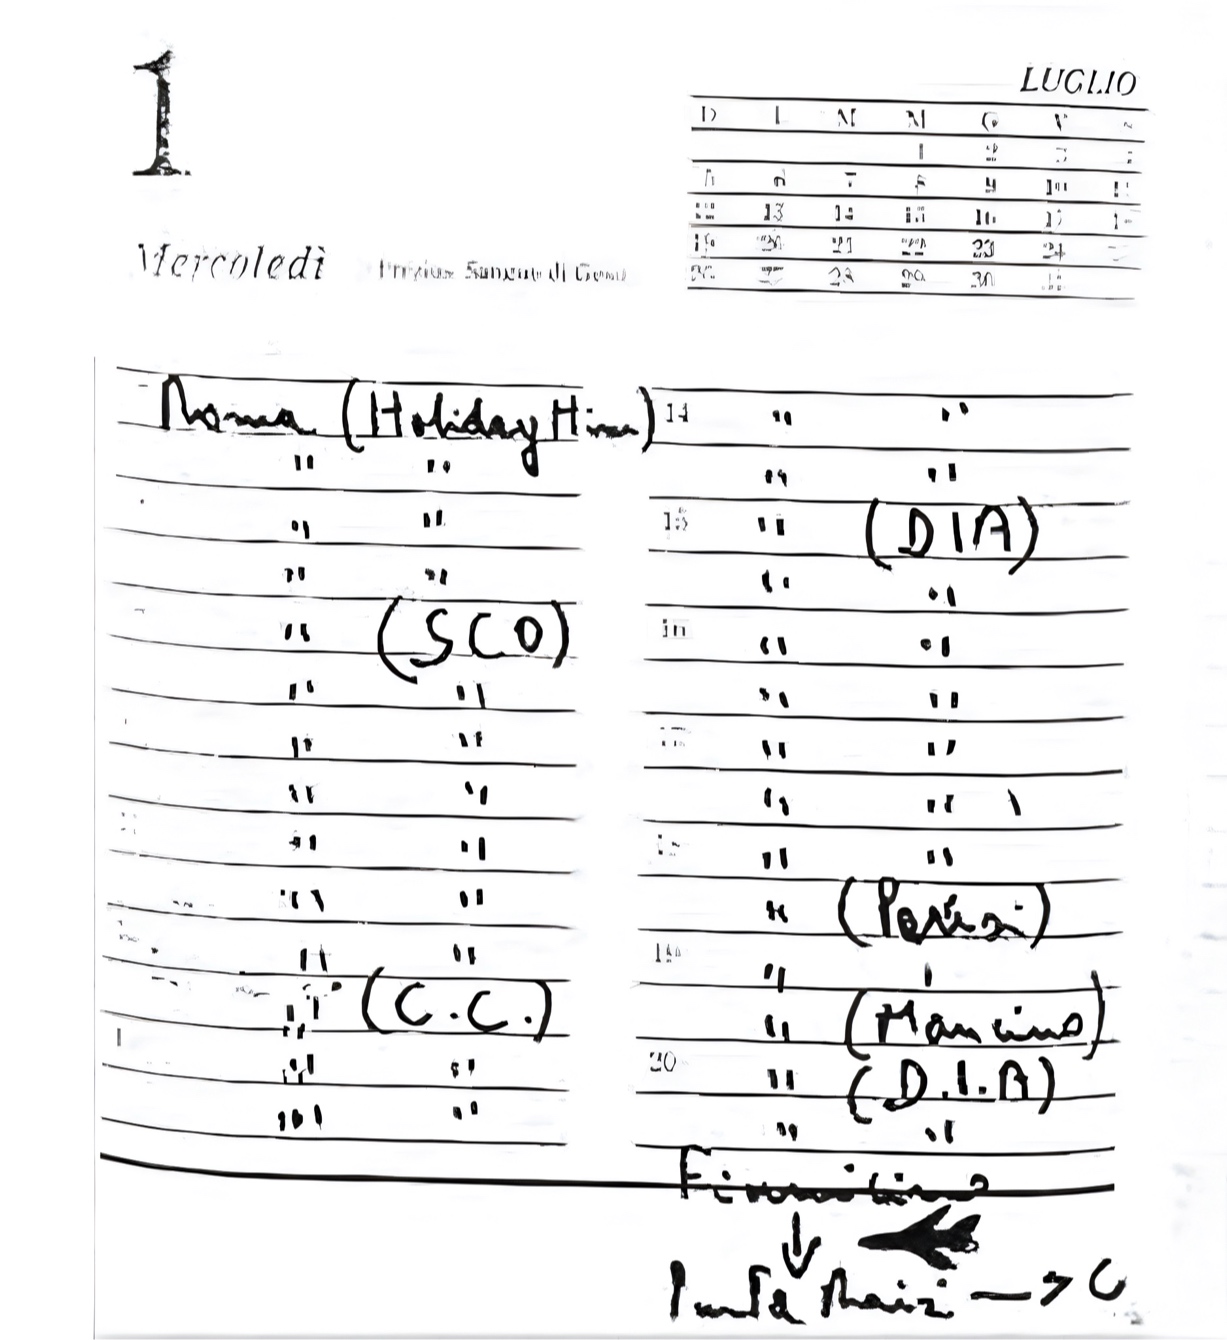 1
LUGLIO
D L M M G V
1
8 9 10 11
13 14 15 16 17
19 20 21 22 23 24
28 29 30
Mercoledì
Prezios. Sangue di Gesù
Roma (Holiday Hinn)
" "
" "
" "
" (SCO)
" "
" "
" "
" "
" "
" "
" (C.C.)
" "
" "
14 " "
" "
15 " (DIA)
" "
" "
" "
" "
" "
" "
" (Parisi)
"
" (Mancino)
20 " (D.I.A)
" "
Fiumicino
↓
Punta Raisi →